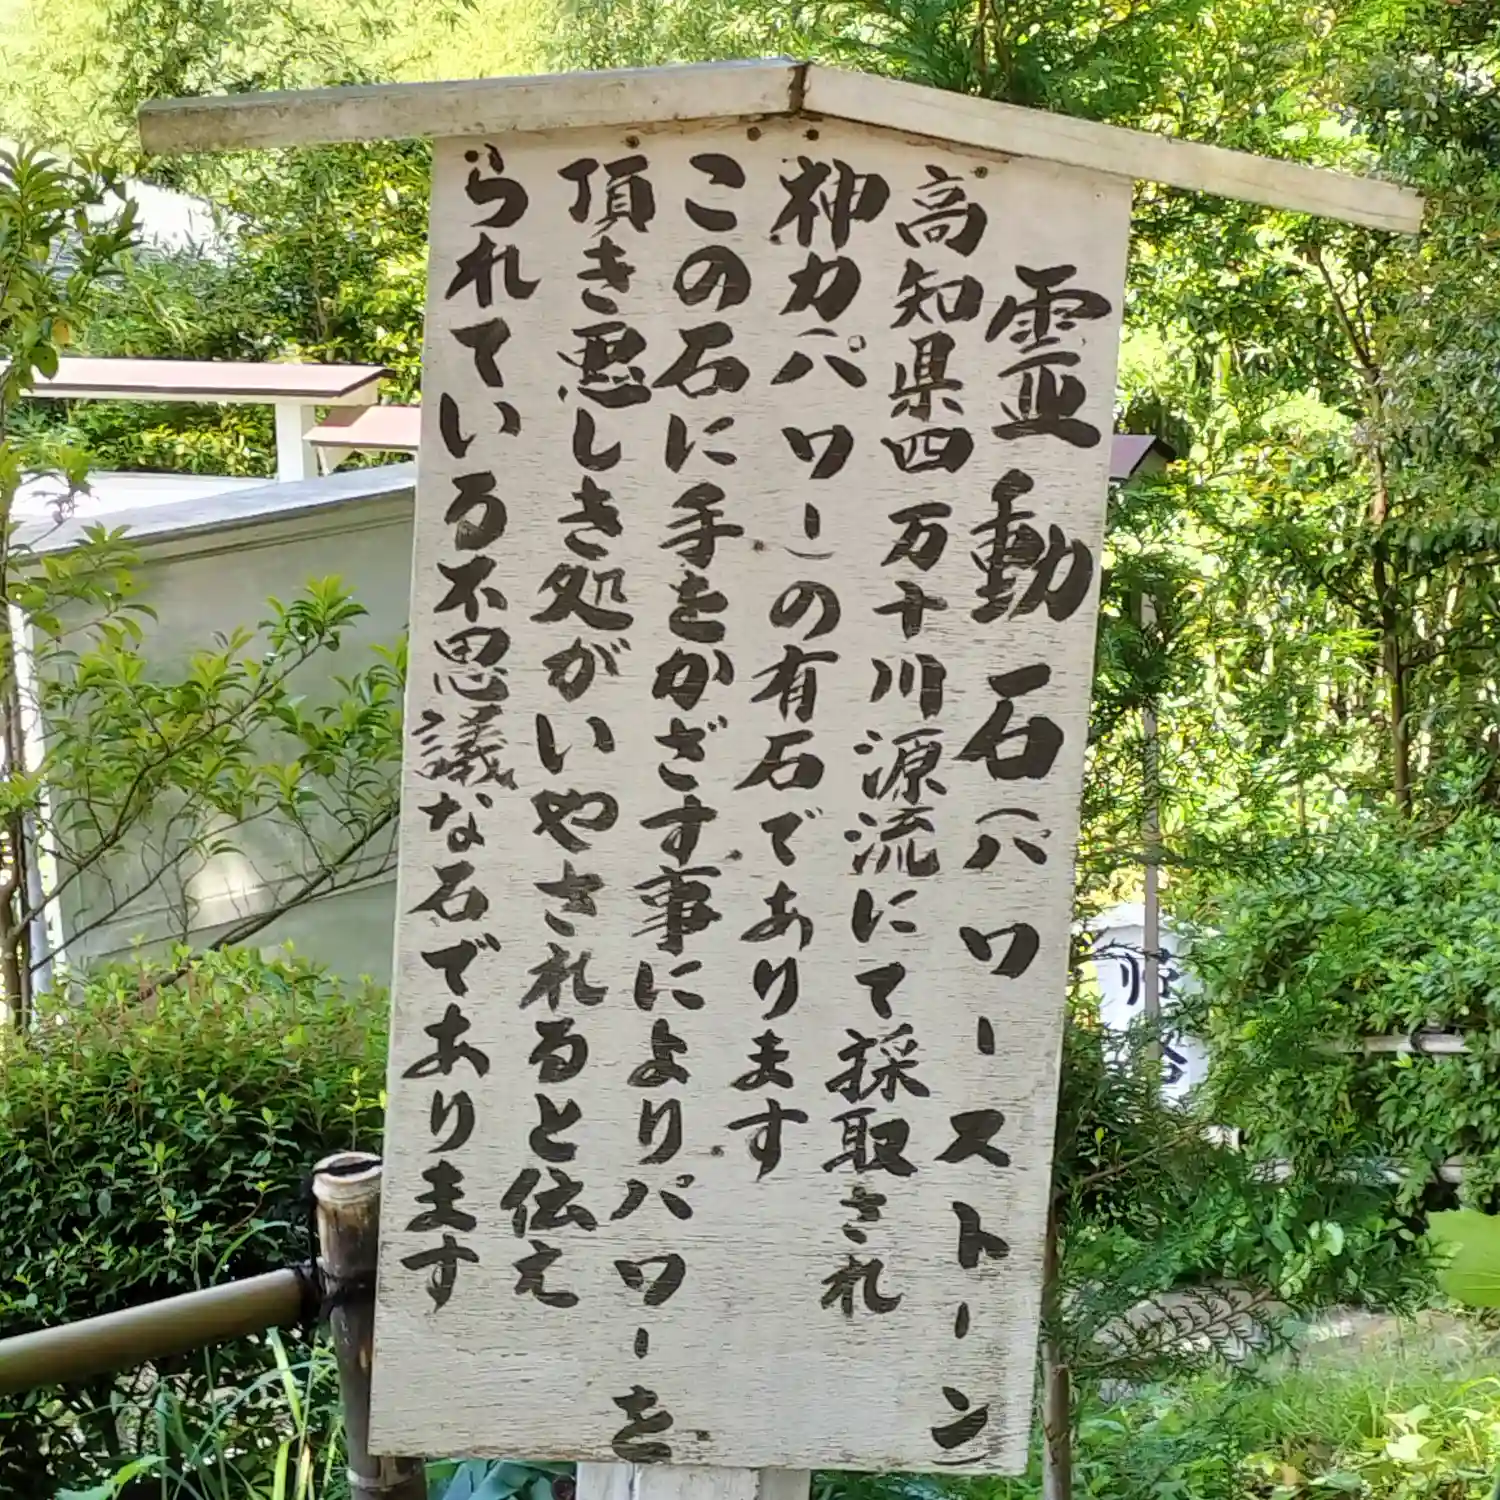 霊動石(パワーストーン)
高知県四万十川源流にて採取され
神力(パワー)の有石であります
この石に手をかざす事によりパワーを
頂き悪しき処がいやされると伝え
られている不思議な石であります